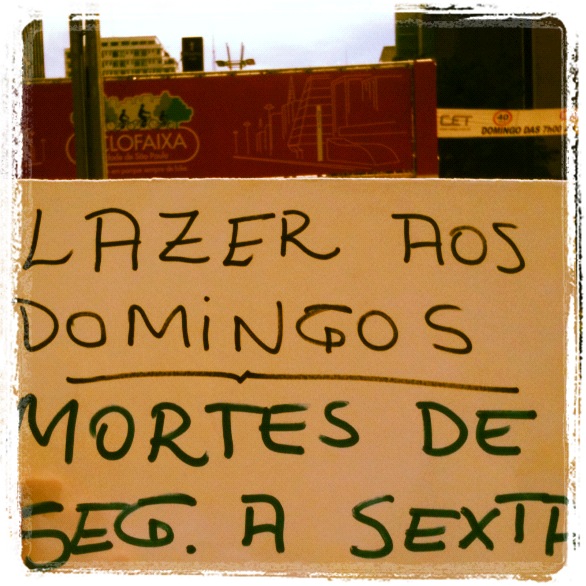 CLOFAIXA
CET
40
DOMINGO DAS 7h00
LAZER AOS
DOMINGOS
MORTES DE
SEG. A SEXTA